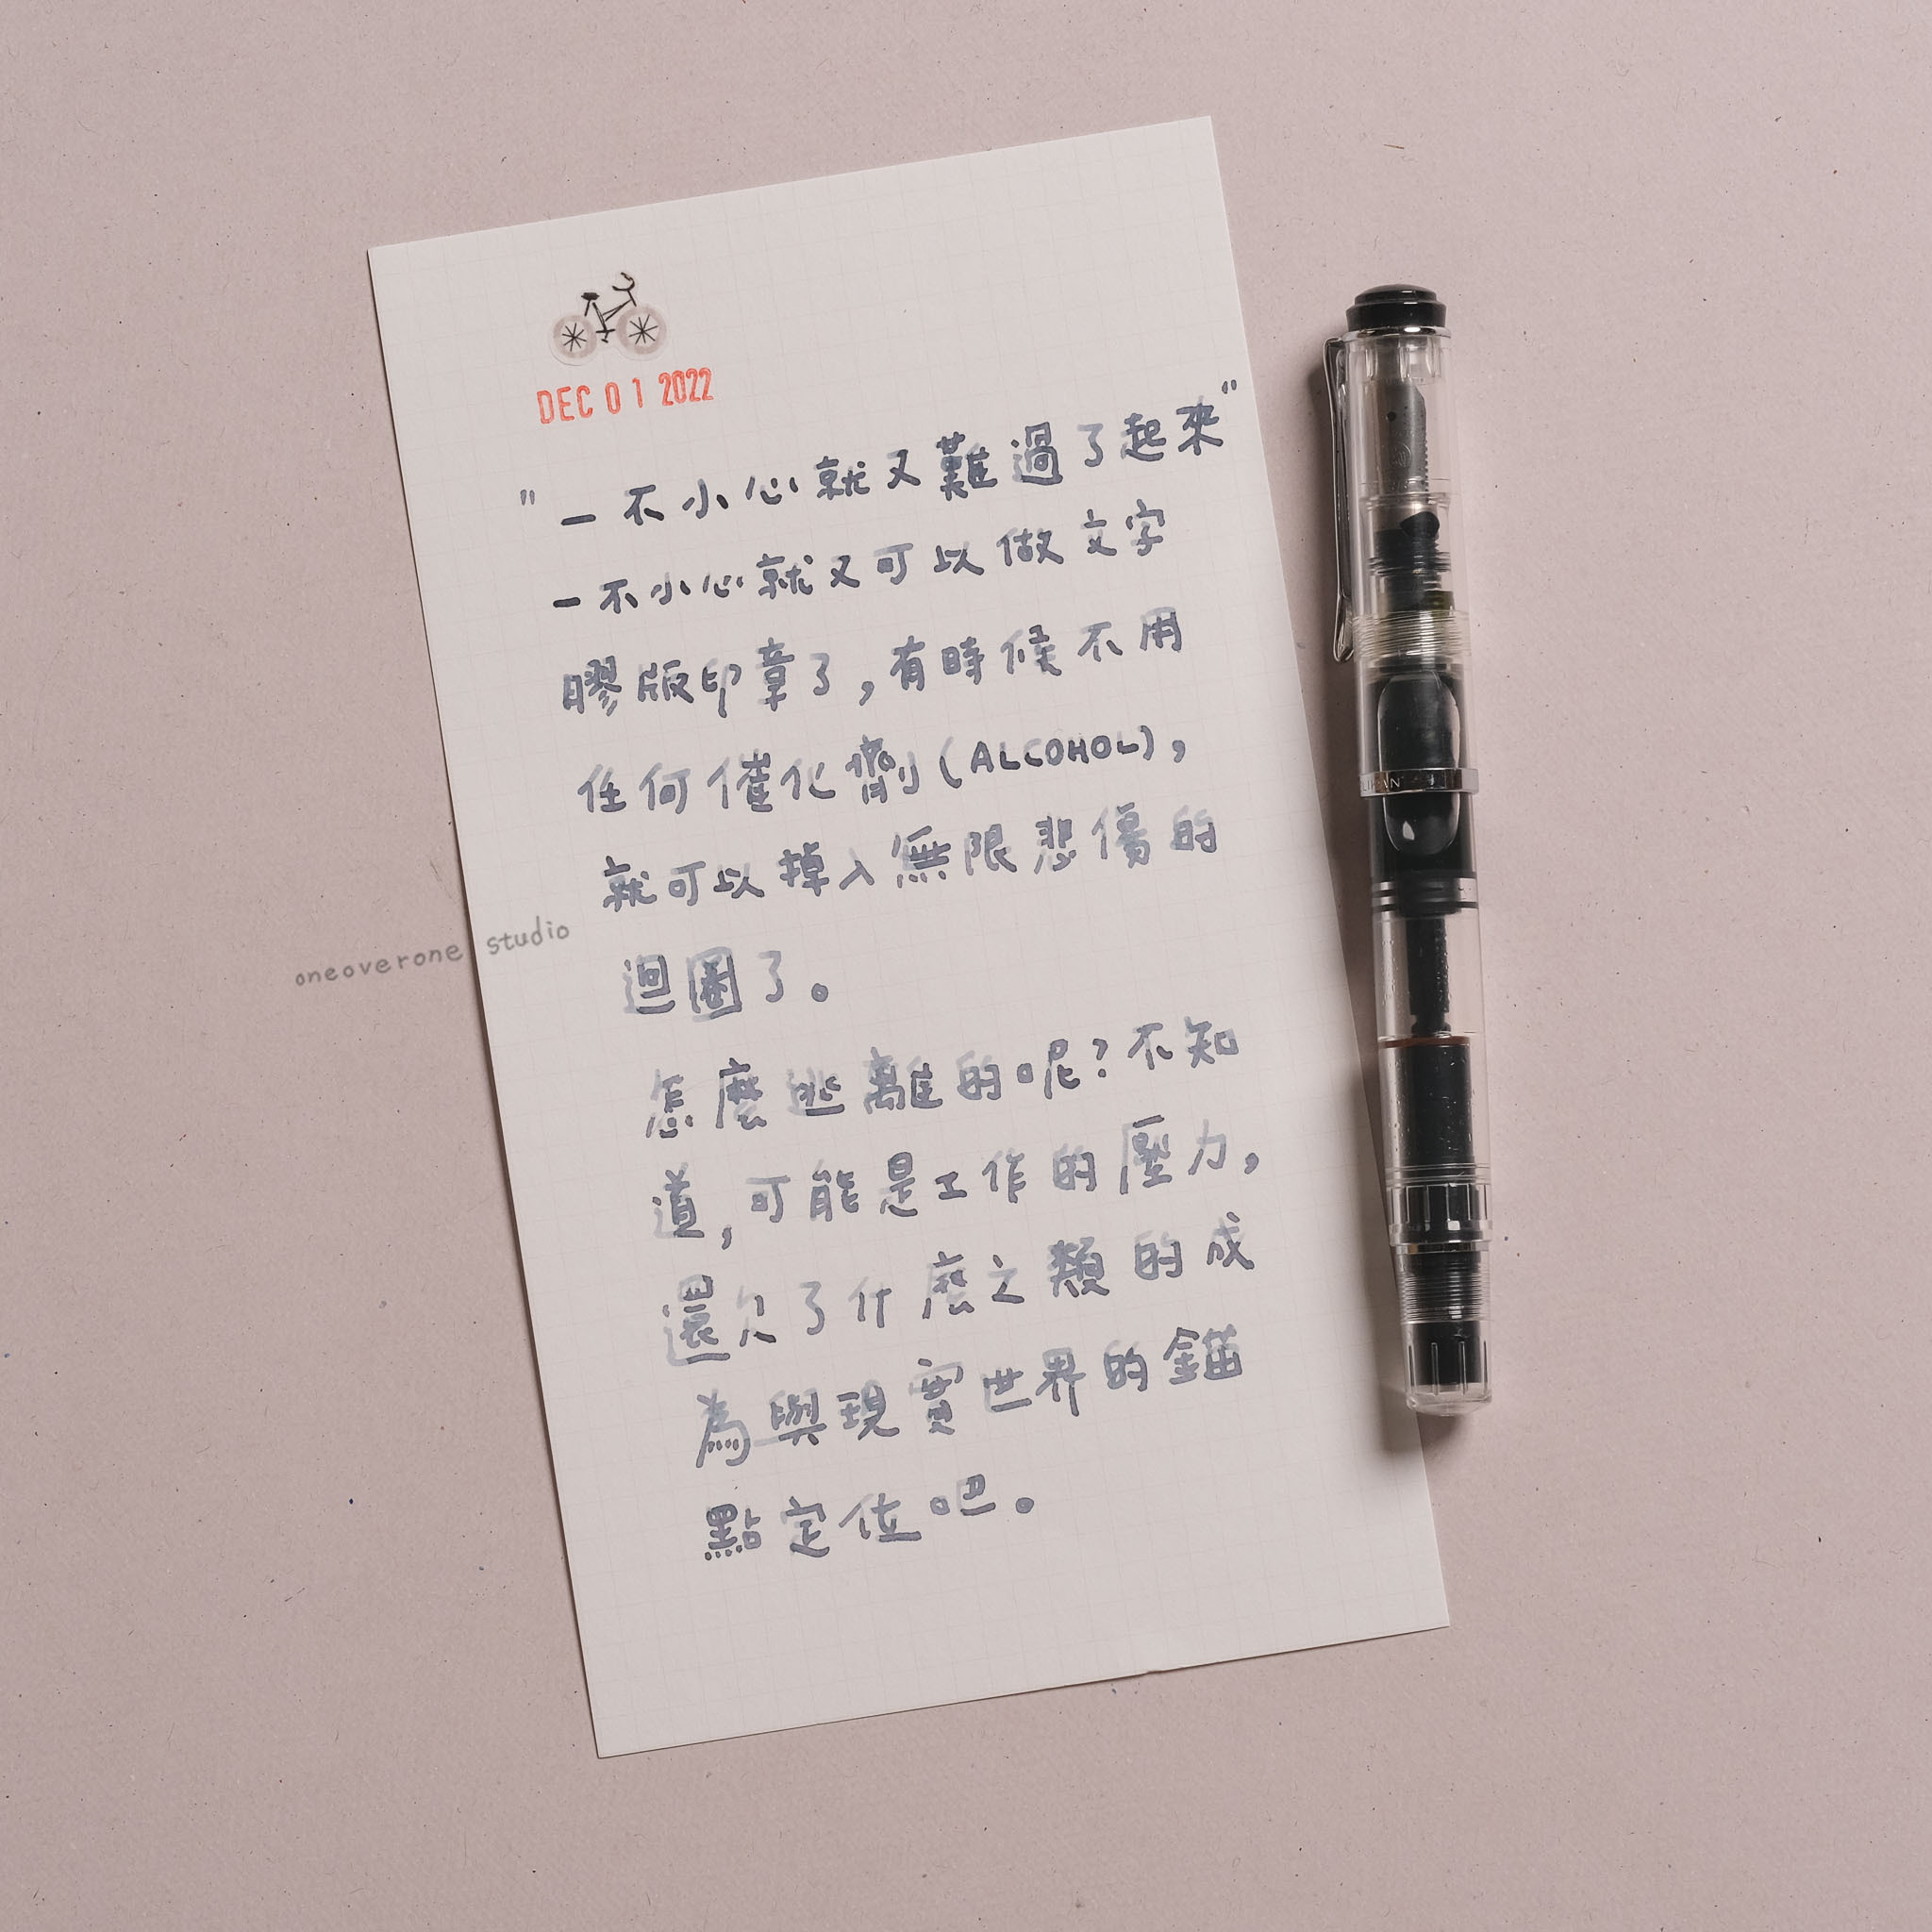 DEC 01 2022
"一不小心就又難過了起來"
一不小心就又可以做文字
膠版印章了,有時候不用
任何催化劑(ALCOHOL),
就可以掉入無限悲傷的
迴圈了。
怎麼逃離的呢?不知
道,可能是工作的壓力,
還欠了什麼之類的成
為與現實世界的錨
點定位吧。
oneoverone studio